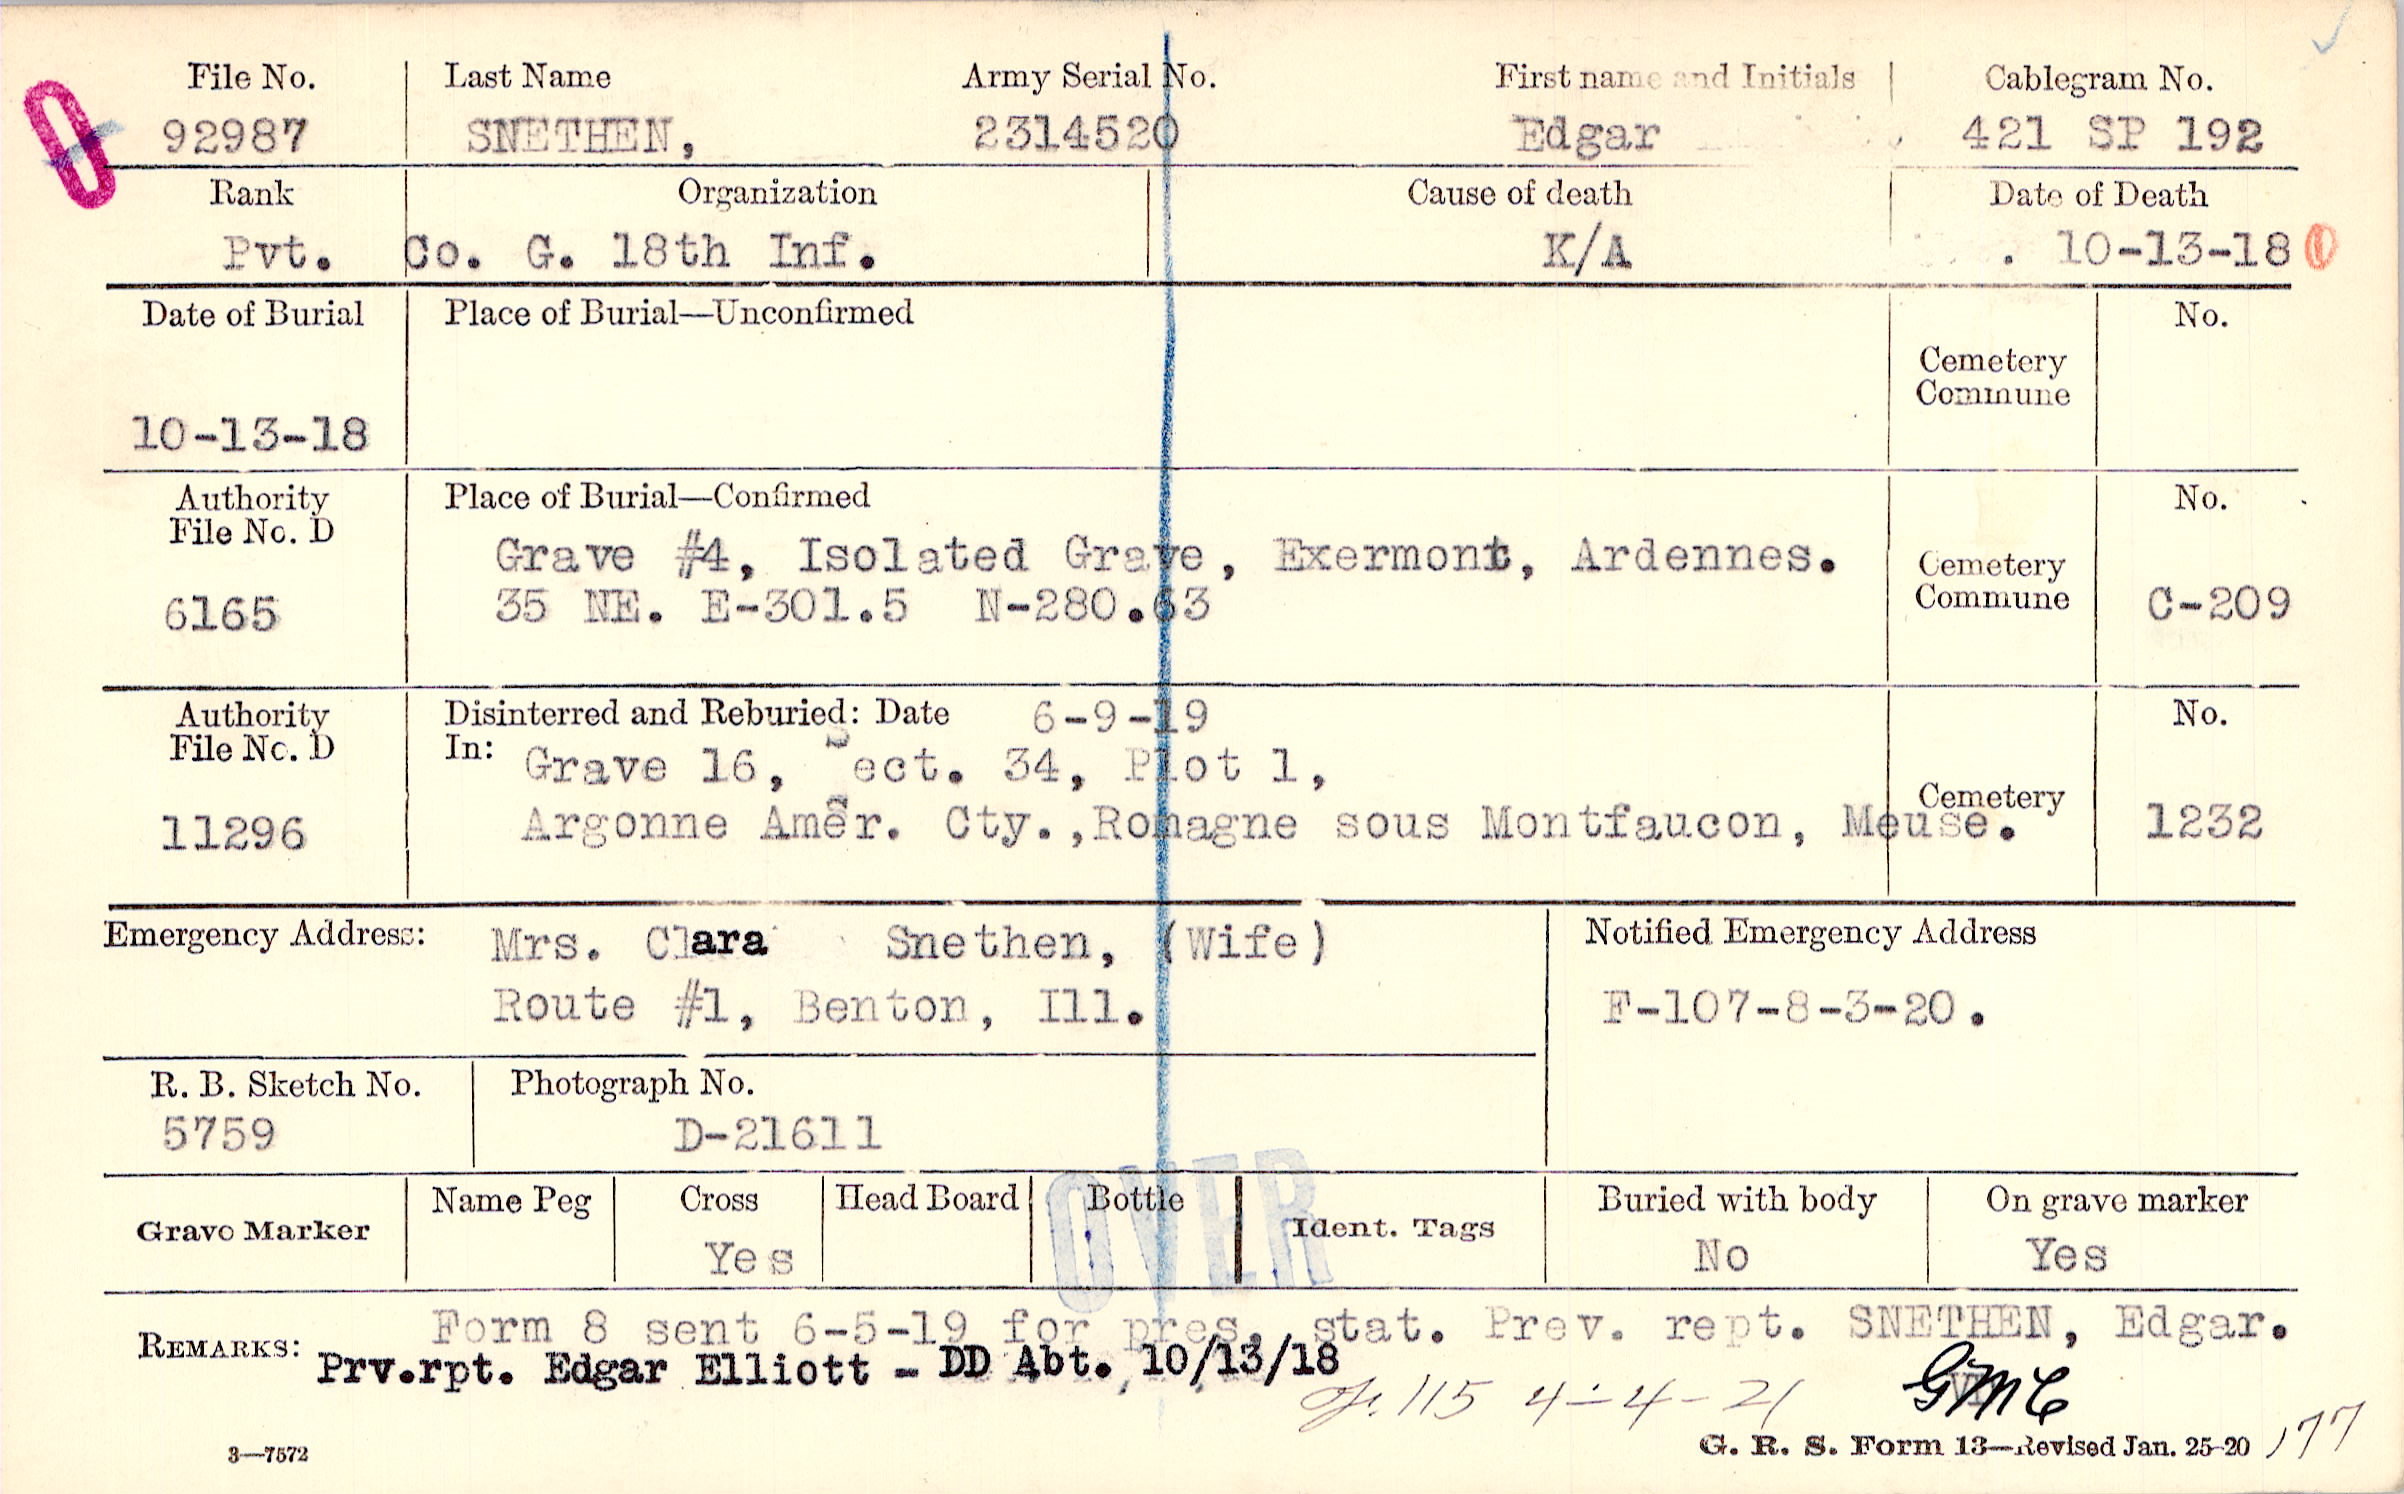 File No. Last Name Army Serial No. First name and Initials Cablegram No.
92987 SNETHEN, 2314520 Edgar 421 SP 192
Rank Organization Cause of death Date of Death
Pvt. Co. G. 18th Inf. K/A 10-13-18
Date of Burial Place of Burial—Unconfirmed No.
Cemetery
Commune
10-13-18
Authority Place of Burial—Confirmed No.
File No. D
Grave #4, Isolated Grave, Exermont, Ardennes. Cemetery
6165 35 NE. E-301.5 N-280.63 Commune C-209
Authority Disinterred and Reburied: Date 6-9-19 No.
File No. D In: Grave 16, Sect. 34, Plot 1,
Cemetery
11296 Argonne Amer. Cty.,Romagne sous Montfaucon, Meuse. 1232
Emergency Address: Mrs. Clara Snethen, (Wife) Notified Emergency Address
Route #1, Benton, Ill. F-107-8-3-20.
R. B. Sketch No. Photograph No.
5759 D-21611
OVER
Grave Marker Name Peg Cross Head Board Bottle Ident. Tags Buried with body On grave marker
Yes No Yes
REMARKS: Form 8 sent 6-5-19 for pres. stat. Prev. rept. SNETHEN, Edgar.
Prv.rpt. Edgar Elliott - DD Abt. 10/13/18
115 4-4-21 GMC
3—7572 G. R. S. Form 13—Revised Jan. 25-20 177